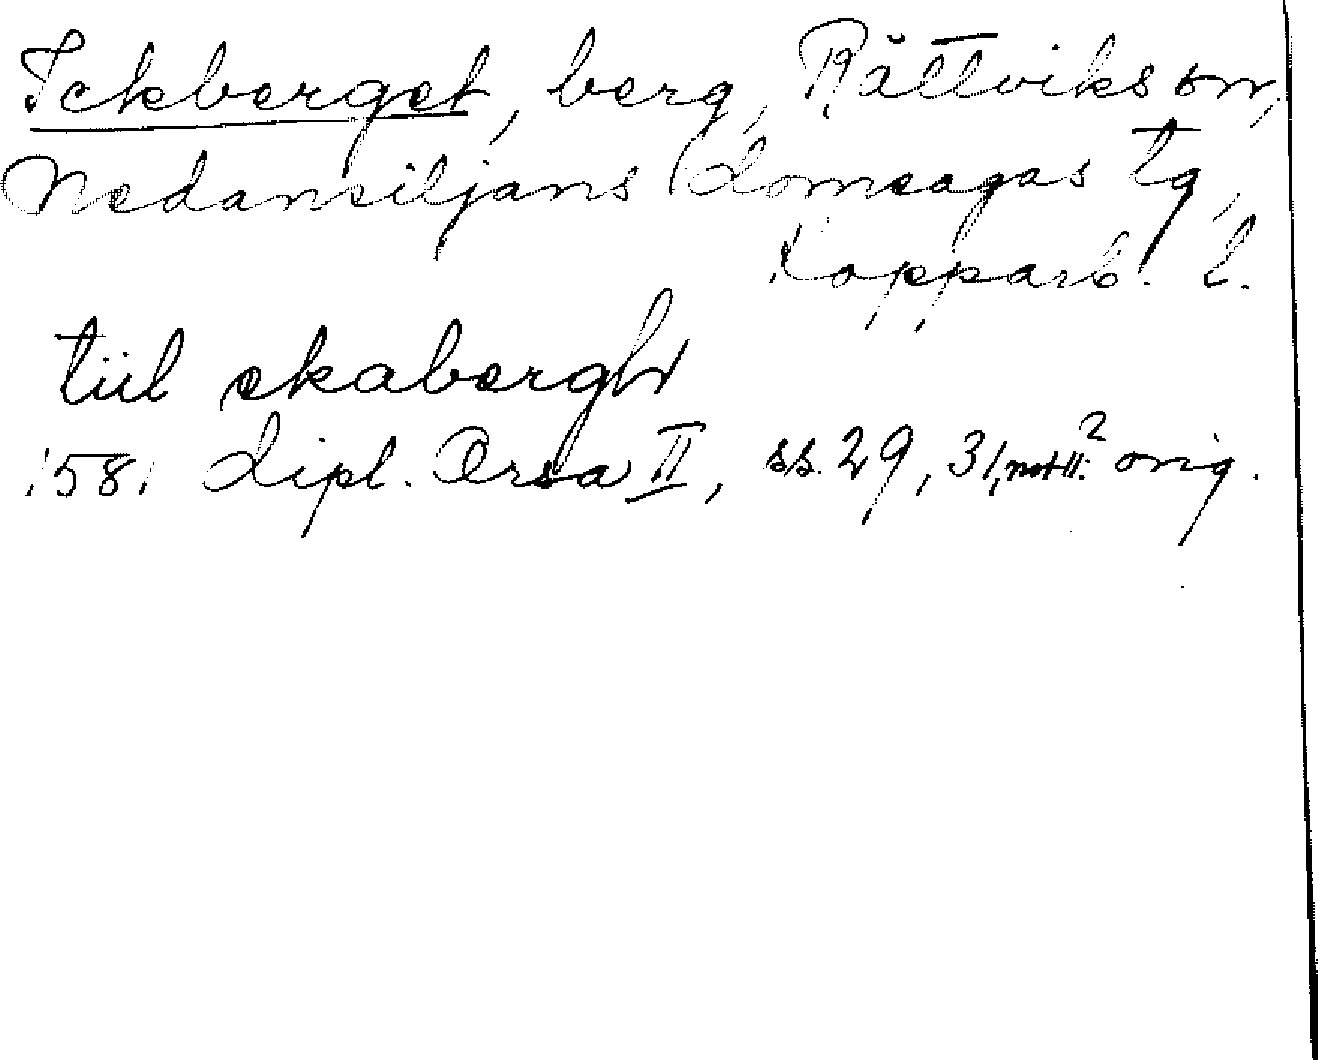 Ickberget, berg, Rättviks sn,
Nedansiljans domsagas tg,
Kopparb. l.
tiil ekabergh
1581 Dipl. Orsa II, ss. 29, 31, not 11.² orig.